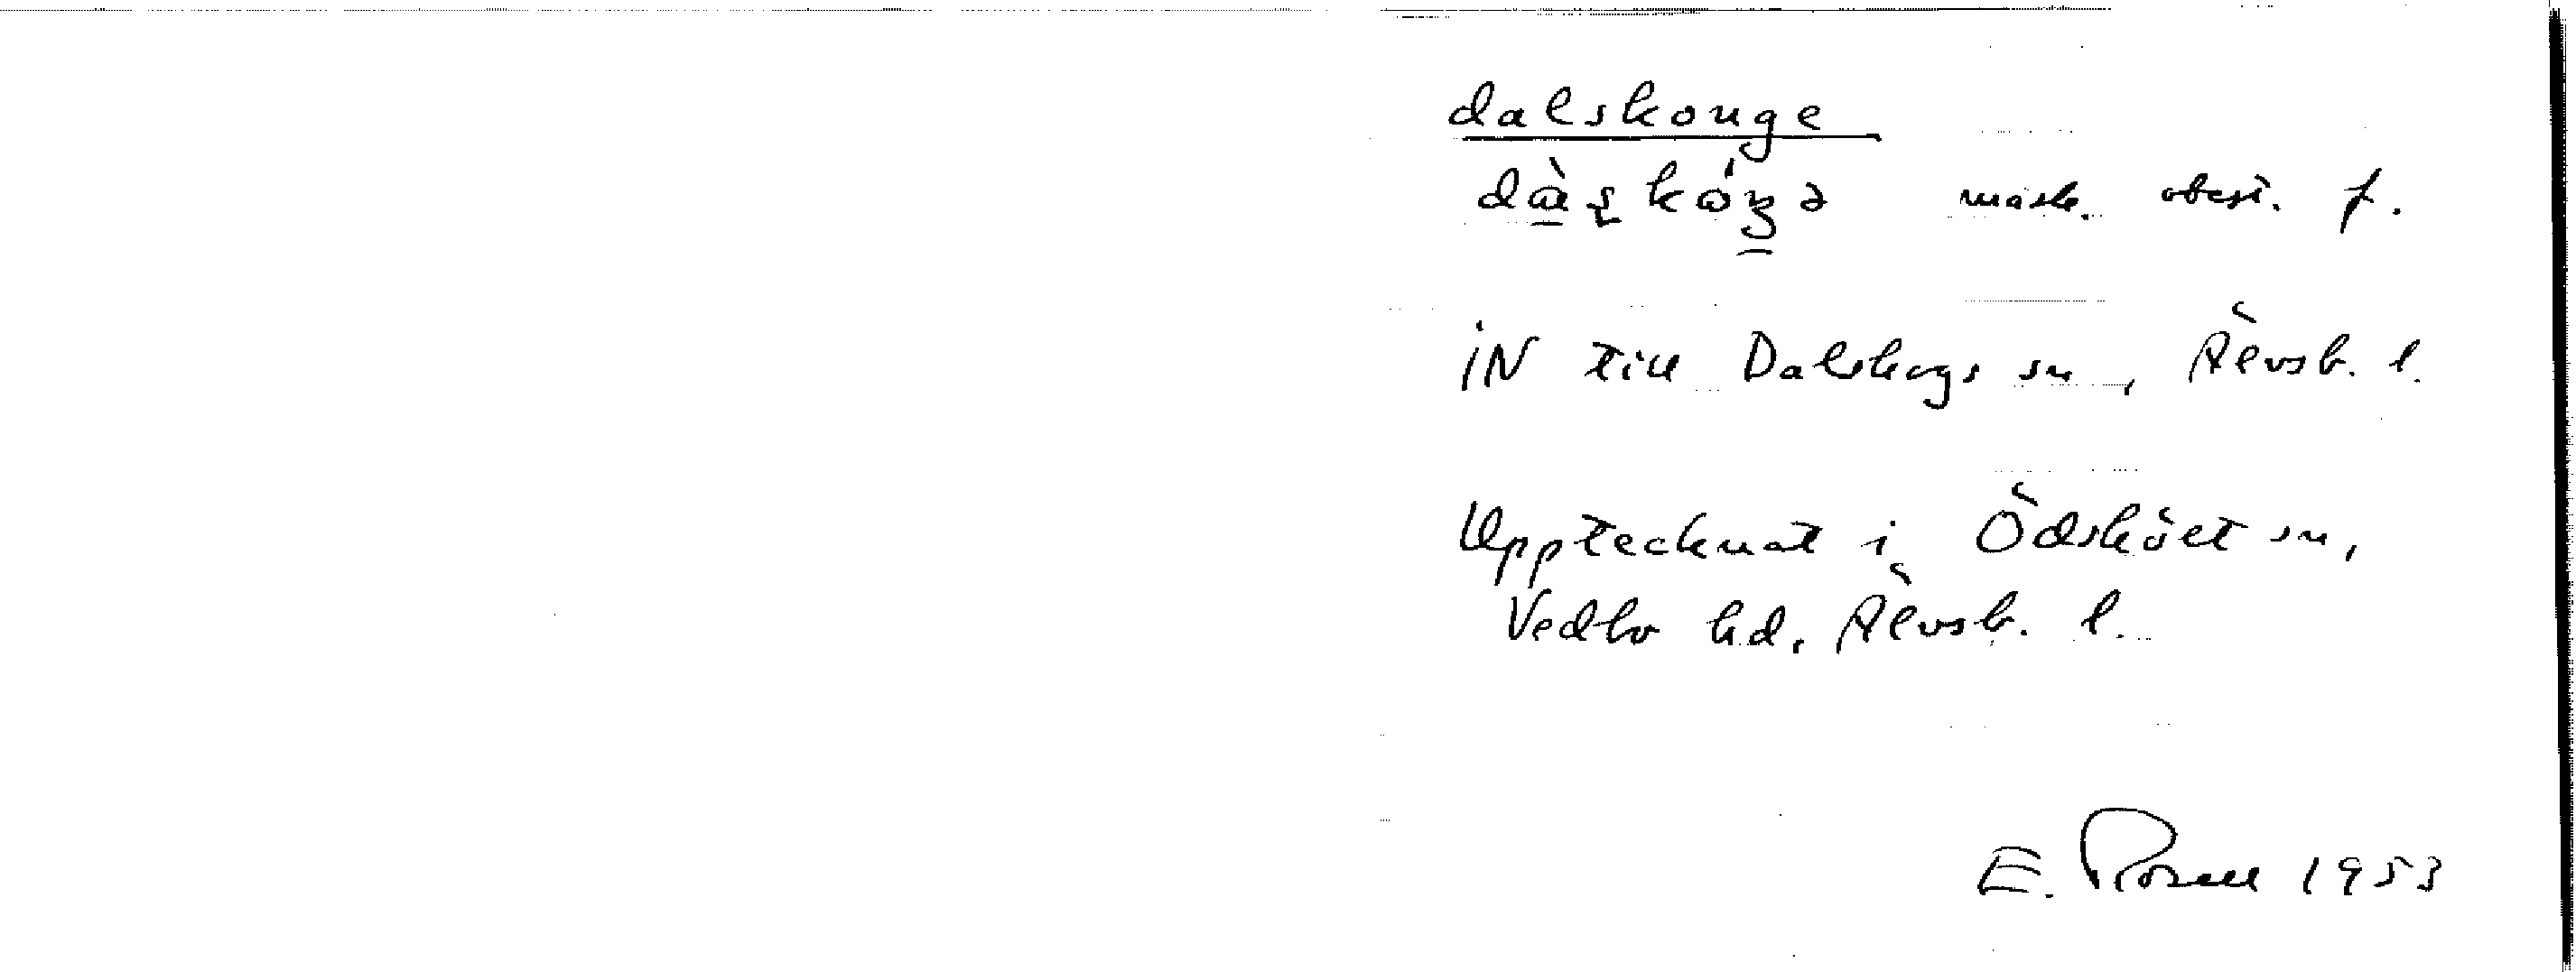 dalskouge
mask. obest. f.
iN till Dalskogs sn, Älvsb. l.
Upptecknat i Ödsköet sn,
Vedbo hd, Älvsb. l.
E. Rosell 1953